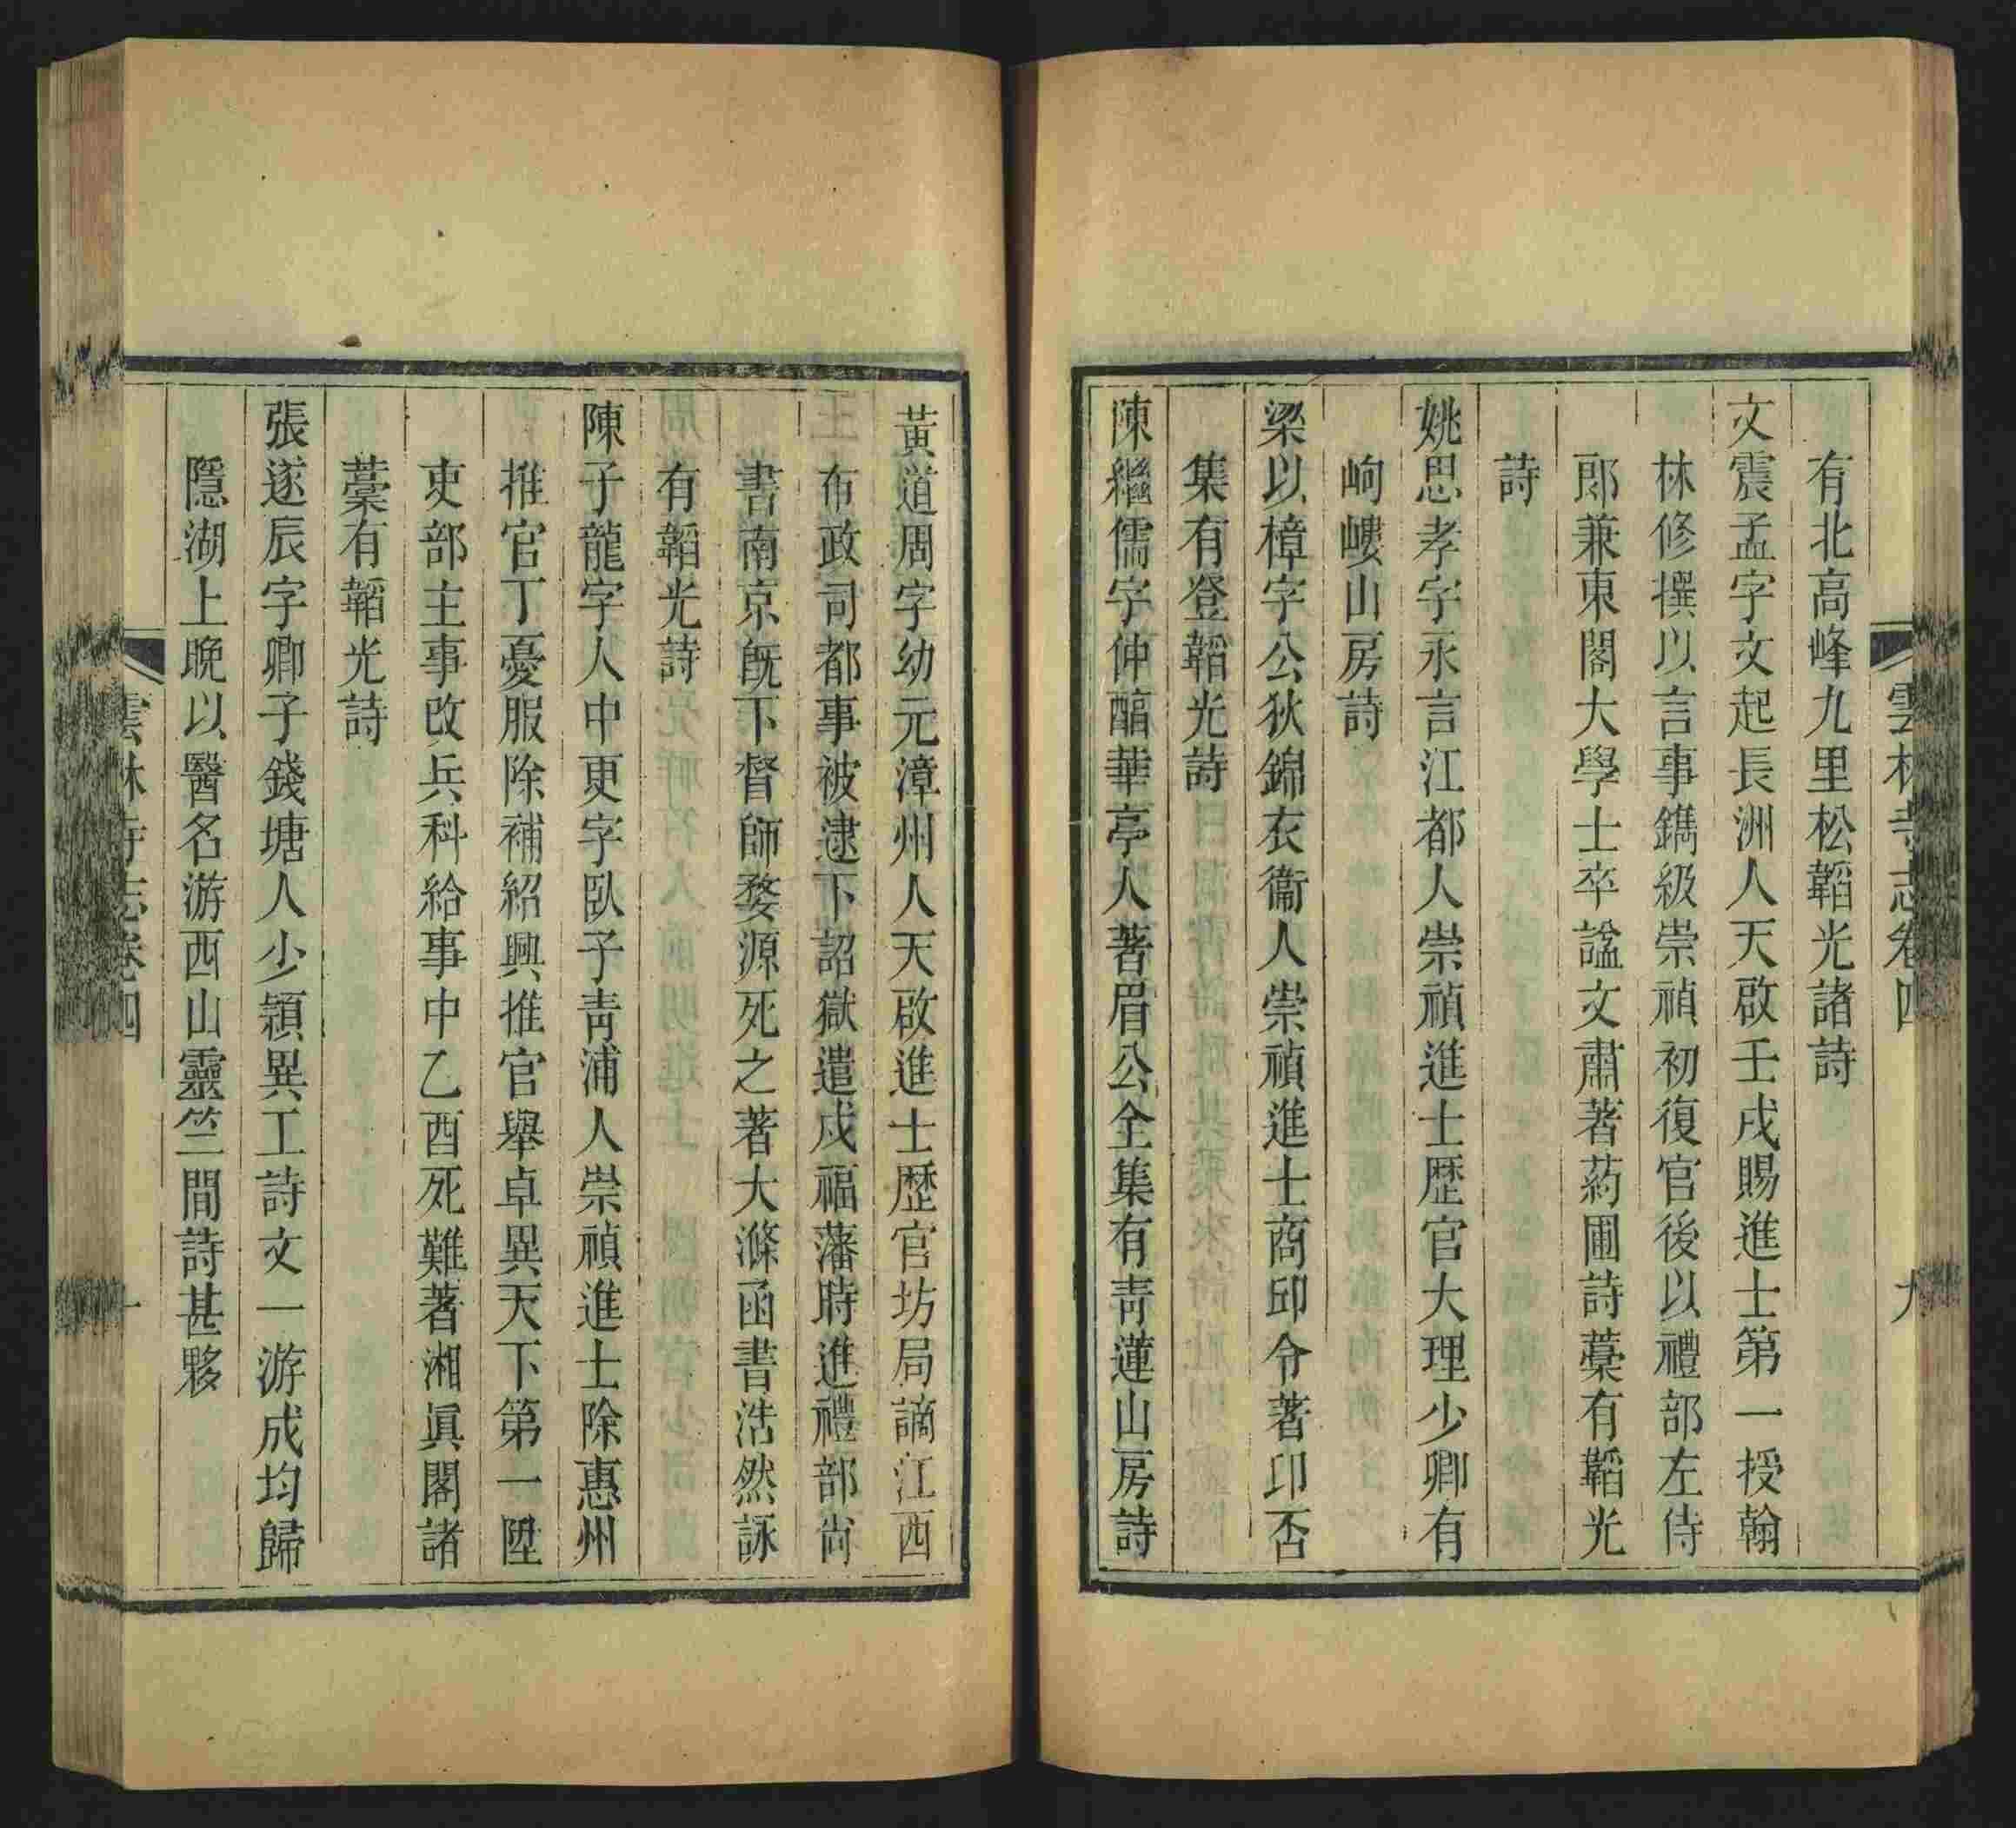 雲林寺志卷四
九
有北高峰九里松韜光諸詩
文震孟字文起長洲人天啟壬戌賜進士第一授翰
林修撰以言事鐫級崇禎初復官後以禮部左侍
郎兼東閣大學士卒諡文肅著葯圃詩藁有韜光
詩
姚思孝字永言江都人崇禎進士歷官大理少卿有
岣嶁山房詩
梁以樟字公狄錦衣衞人崇禎進士商邱令著卬否
集有登韜光詩
陳繼儒字仲醕華亭人著眉公全集有青蓮山房詩
黃道周字幼元漳州人天啟進士歷官坊局謫江西
布政司都事被逮下詔獄遣戍福藩時進禮部尙
書南京旣下督師婺源死之著大滌函書浩然詠
有韜光詩
陳子龍字人中更字臥子靑浦人崇禎進士除惠州
推官丁憂服除補紹興推官舉卓異天下第一陞
吏部主事改兵科給事中乙酉死難著湘眞閣諸
藁有韜光詩
張遂辰字卿子錢塘人少穎異工詩文一游成均歸
隱湖上晚以醫名游西山靈竺間詩甚夥
雲林寺志卷四